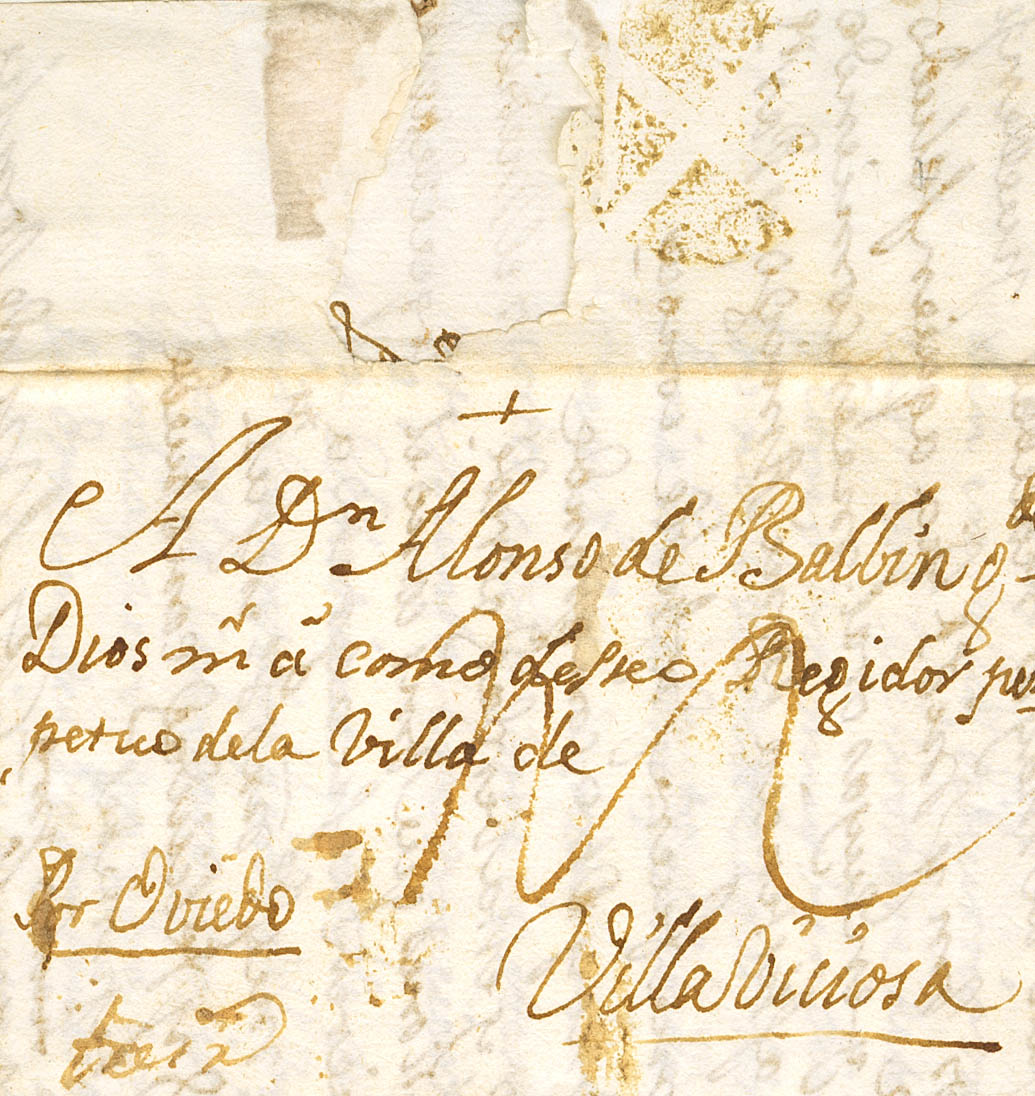 +
A Dn Alonso de Balbin q
Dios m̃ ã como desseo Regidor per
petuo dela Villa de
Por Oviedo
Villa Viciosa